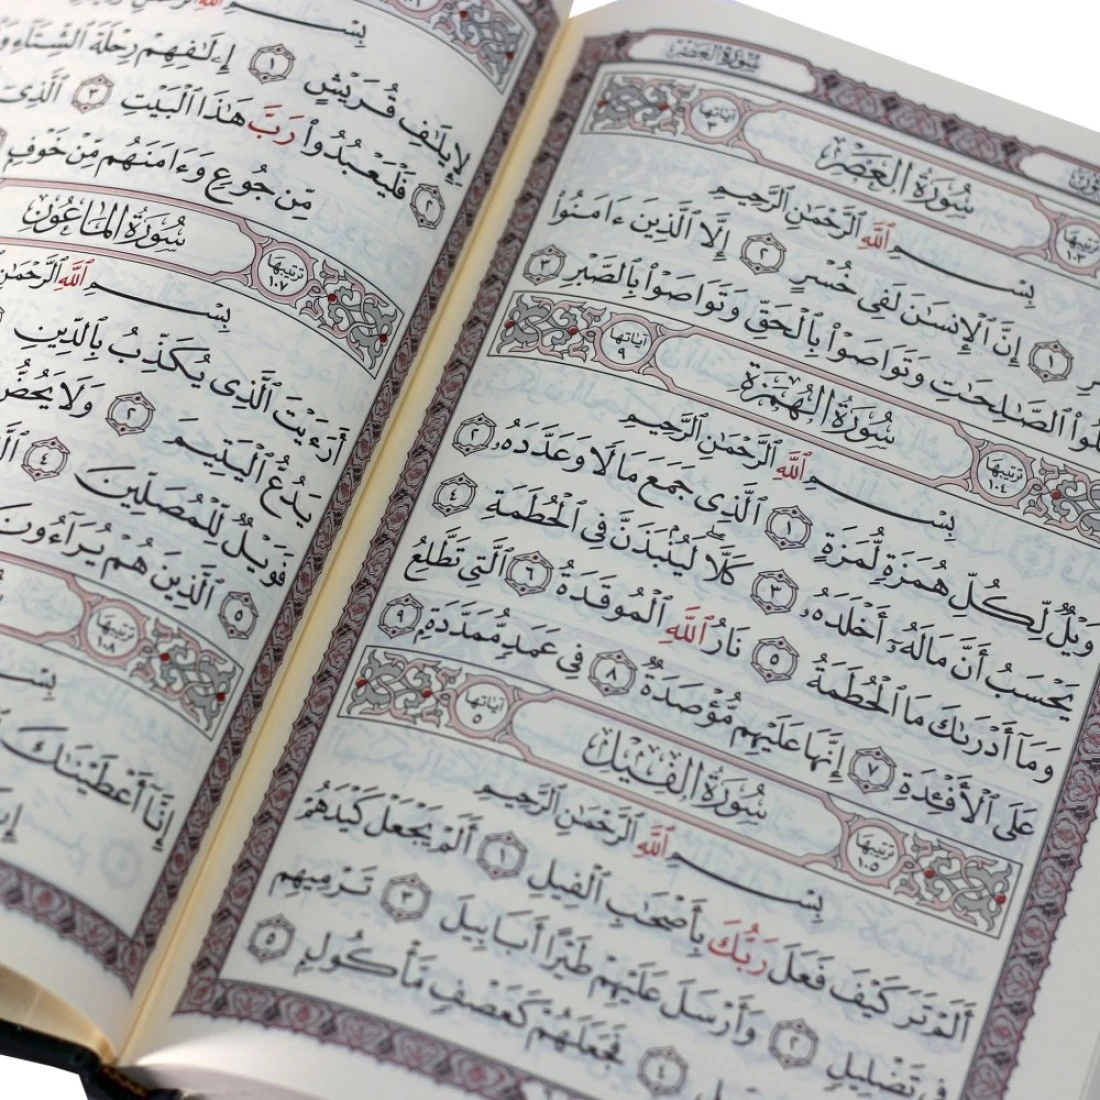 سُورَةُ العَصْرِ
آياتها ٣
سُورَةُ العَصْرِ
ترتيبها ١٠٣
بِسْمِ ٱللَّهِ ٱلرَّحْمَٰنِ ٱلرَّحِيمِ
١ إِنَّ ٱلْإِنسَٰنَ لَفِى خُسْرٍ ٢ إِلَّا ٱلَّذِينَ ءَامَنُوا۟
ٱلصَّٰلِحَٰتِ وَتَوَاصَوْا۟ بِٱلْحَقِّ وَتَوَاصَوْا۟ بِٱلصَّبْرِ ٣
ترتيبها ١٠٤
سُورَةُ الهُمَزَةِ
آياتها ٩
بِسْمِ ٱللَّهِ ٱلرَّحْمَٰنِ ٱلرَّحِيمِ
وَيْلٌ لِّكُلِّ هُمَزَةٍ لُّمَزَةٍ ١ ٱلَّذِى جَمَعَ مَالًا وَعَدَّدَهُۥ ٢
يَحْسَبُ أَنَّ مَالَهُۥٓ أَخْلَدَهُۥ ٣ كَلَّا ۖ لَيُنۢبَذَنَّ فِى ٱلْحُطَمَةِ ٤
وَمَآ أَدْرَىٰكَ مَا ٱلْحُطَمَةُ ٥ نَارُ ٱللَّهِ ٱلْمُوقَدَةُ ٦ ٱلَّتِى تَطَّلِعُ
عَلَى ٱلْأَفْـِٔدَةِ ٧ إِنَّهَا عَلَيْهِم مُّؤْصَدَةٌ ٨ فِى عَمَدٍ مُّمَدَّدَةٍۭ ٩
ترتيبها ١٠٥
سُورَةُ الفِيلِ
آياتها ٥
بِسْمِ ٱللَّهِ ٱلرَّحْمَٰنِ ٱلرَّحِيمِ
أَلَمْ تَرَ كَيْفَ فَعَلَ رَبُّكَ بِأَصْحَٰبِ ٱلْفِيلِ ١ أَلَمْ يَجْعَلْ كَيْدَهُمْ
فِى تَضْلِيلٍ ٢ وَأَرْسَلَ عَلَيْهِمْ طَيْرًا أَبَابِيلَ ٣ تَرْمِيهِم
٤ فَجَعَلَهُمْ كَعَصْفٍ مَّأْكُولٍۭ ٥
بِسْمِ ٱللَّهِ
لِإِيلَٰفِ قُرَيْشٍ ١ إِۦلَٰفِهِمْ رِحْلَةَ ٱلشِّتَآءِ
٢ فَلْيَعْبُدُوا۟ رَبَّ هَٰذَا ٱلْبَيْتِ ٣ ٱلَّذِىٓ
مِّن جُوعٍ وَءَامَنَهُم مِّنْ خَوْفٍۭ
ترتيبها ١٠٧
سُورَةُ المَاعُونِ
بِسْمِ ٱللَّهِ
أَرَءَيْتَ ٱلَّذِى يُكَذِّبُ بِٱلدِّينِ
يَدُعُّ ٱلْيَتِيمَ ٢ وَلَا يَحُضُّ
فَوَيْلٌ لِّلْمُصَلِّينَ ٤
٥ ٱلَّذِينَ هُمْ يُرَآءُونَ
ترتيبها ١٠٨
بِسْمِ
إِنَّآ أَعْطَيْنَٰكَ